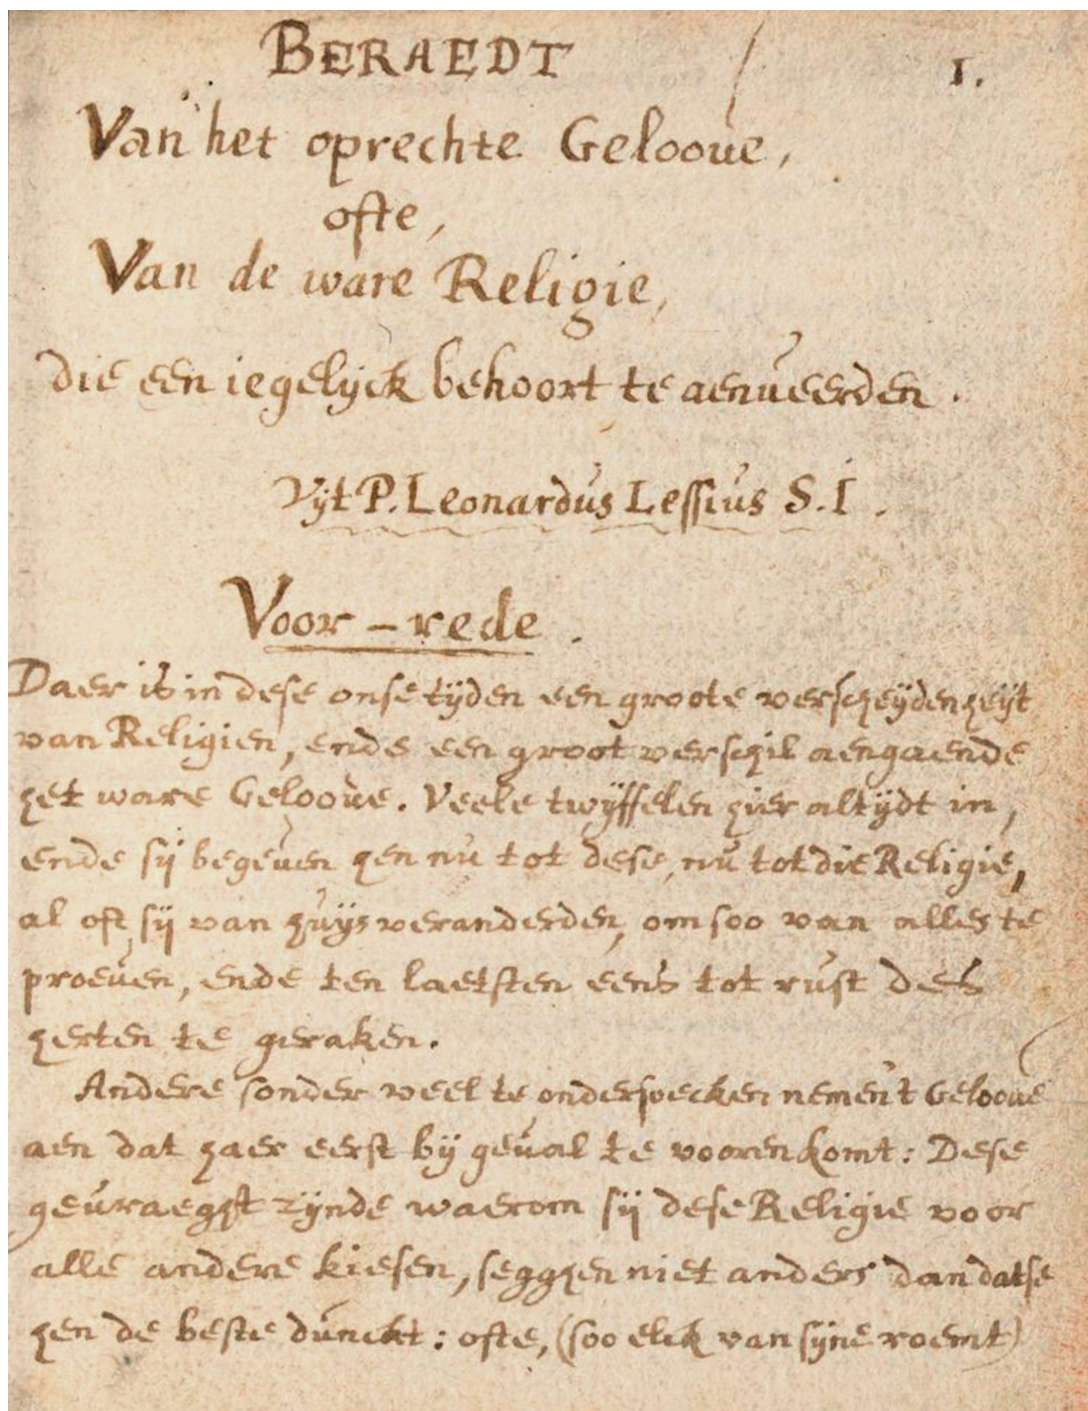 BERAEDT
1.
Van het oprechte Geloove,
ofte,
Van de ware Religie,
die een iegelijck behoort te aenveerden.
Vijt P. Leonardus Lessius S.I.
Voor-rede.
Daer is in dese onse tijden een groote verscheijdenheijt
van Religien, ende een groot verschil aengaende
het ware Geloove. Veele twijffelen hier altijdt in,
ende sij begeven hen nu tot dese, nu tot die Religie,
al oft sij van huijs veranderden, om soo van alles te
proeven, ende ten laetsten eens tot rust des
herten te geraken.
Andere sonder veel te ondersoecken nemen't Geloove
aen dat haer eerst bij geval te vooren komt: Dese
gevraeght zijnde waerom sij dese Religie voor
alle andere kiesen, segghen niet anders dan datse
hen de beste dunckt: ofte, (soo elck van sijne roemt)